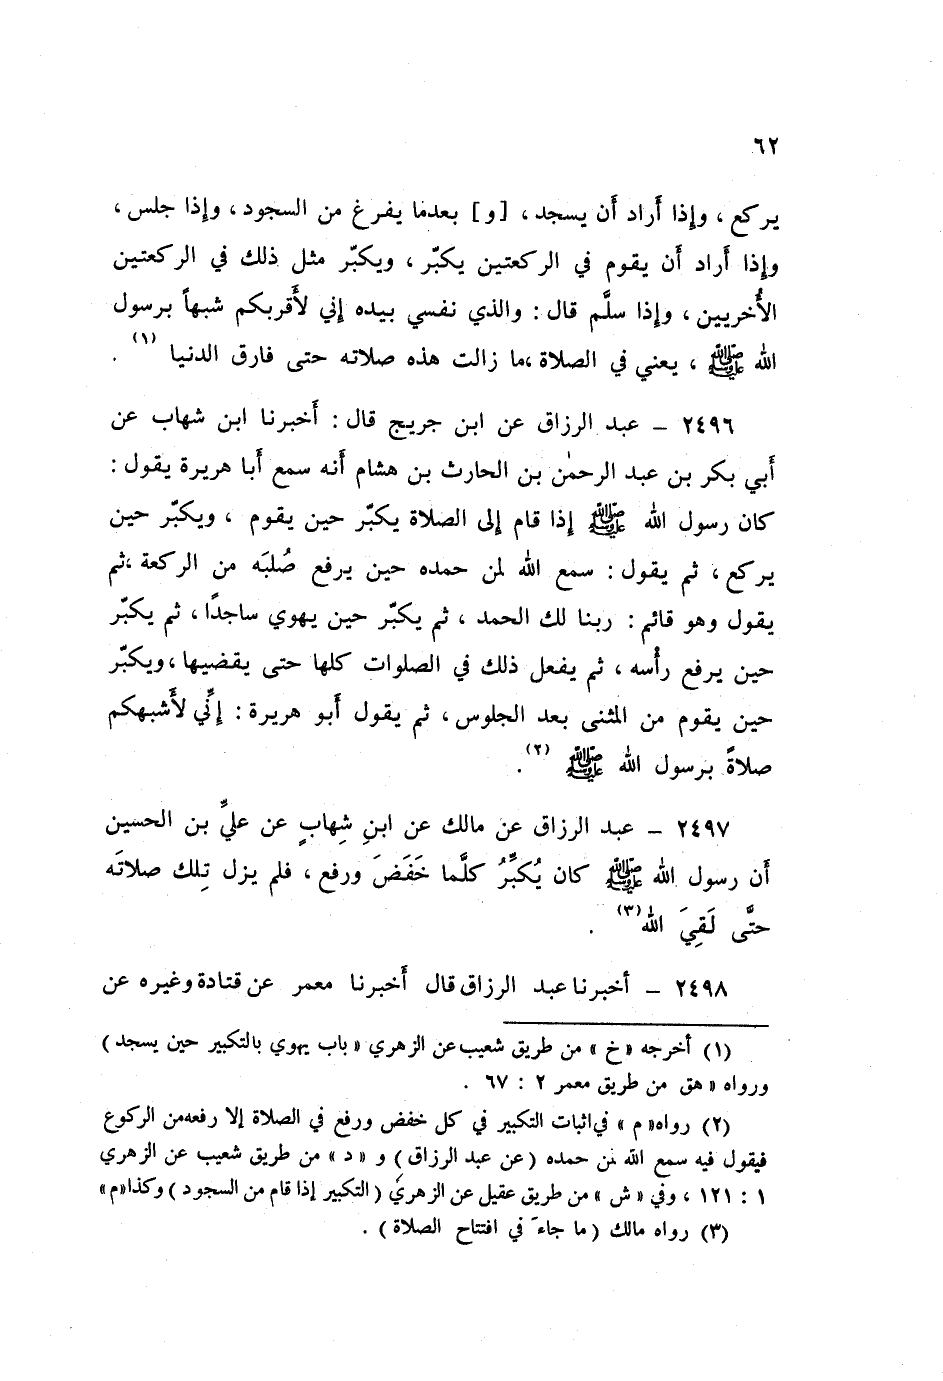 ٦٢
يركع ، وإذا أراد أن يسجد ، [و] بعدما يفرغ من السجود ، وإذا جلس ،
وإذا أراد أن يقوم في الركعتين يكبّر ، ويكبّر مثل ذلك في الركعتين
الأُخريين ، وإذا سلَّم قال : والذي نفسي بيده إني لأقربكم شبهاً برسول
الله ﷺ ، يعني في الصلاة ،ما زالت هذه صلاته حتى فارق الدنيا (١) .
٢٤٩٦ – عبد الرزاق عن ابن جريج قال : أخبرنا ابن شهاب عن
أبي بكر بن عبد الرحمٰن بن الحارث بن هشام أنه سمع أبا هريرة يقول :
كان رسول الله ﷺ إذا قام إلى الصلاة يكبّر حين يقوم ، ويكبّر حين
يركع ، ثم يقول : سمع الله لمن حمده حين يرفع صُلبَه من الركعة ،ثم
يقول وهو قائم : ربنا لك الحمد ، ثم يكبّر حين يهوي ساجدًا ، ثم يكبّر
حين يرفع رأْسه ، ثم يفعل ذلك في الصلوات كلها حتى يقضيها ،ويكبّر
حين يقوم من المثنى بعد الجلوس ، ثم يقول أبو هريرة : إنِّي لأشبهكم
صلاةً برسول الله ﷺ (٢) .
٢٤٩٧ – عبد الرزاق عن مالك عن ابنِ شِهابٍ عن عليِّ بن الحسين
أن رسول الله ﷺ كان يُكبِّرُ كلَّما خَفَضَ ورفع ، فلم يزل تِلك صلاتَه
حتَّى لَقِيَ الله (٣) .
٢٤٩٨ – أخبرنا عبد الرزاق قال أخبرنا معمر عن قتادة وغيره عن
(١) أخرجه «خ» من طريق شعيب عن الزهري «باب يهوي بالتكبير حين يسجد)
ورواه «هق من طريق معمر ٢ : ٦٧ .
(٢) رواه «م» في اثبات التكبير في كل خفض ورفع في الصلاة إلا رفعه من الركوع
فيقول فيه سمع الله لمن حمده (عن عبد الرزاق) و «د» من طريق شعيب عن الزهري
١ : ١٢١ ، وفي «ش» من طريق عقيل عن الزهري (التكبير إذا قام من السجود) وكذا «م»
(٣) رواه مالك (ما جاء في افتتاح الصلاة) .